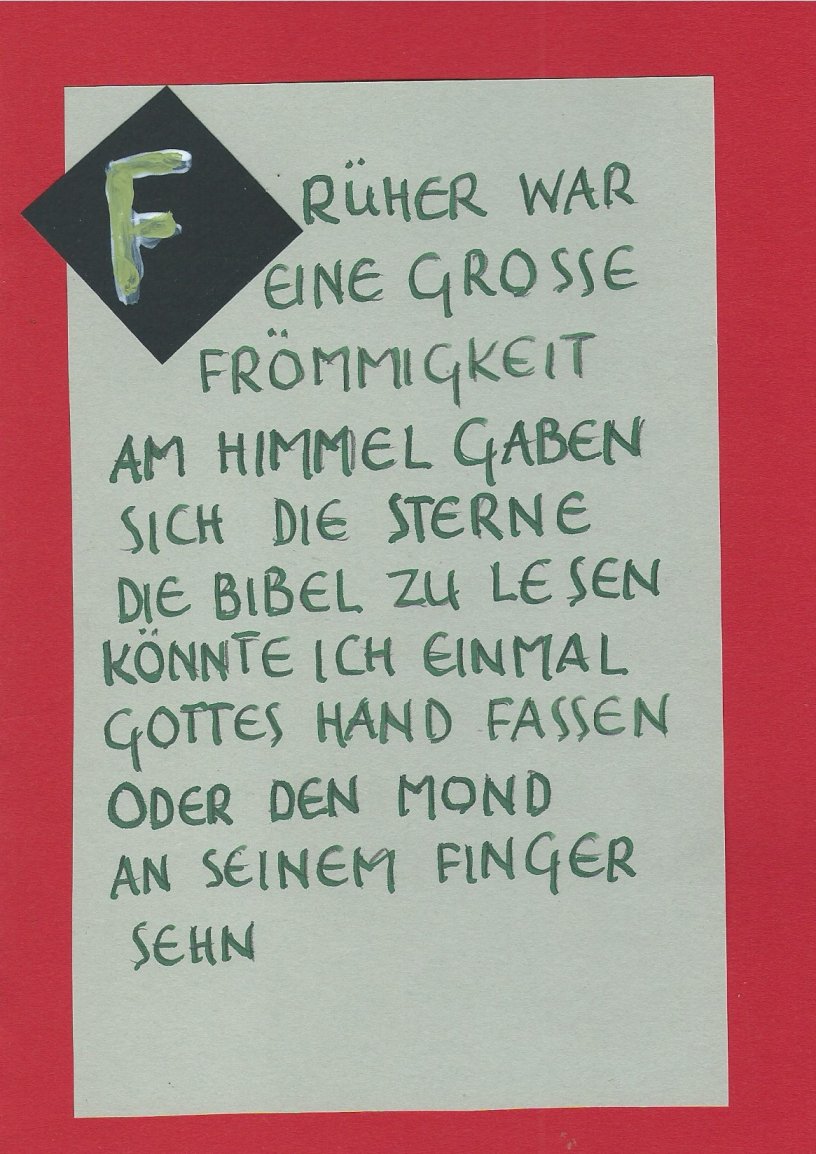 FRÜHER WAR
EINE GROSSE
FRÖMMIGKEIT
AM HIMMEL GABEN
SICH DIE STERNE
DIE BIBEL ZU LESEN
KÖNNTE ICH EINMAL
GOTTES HAND FASSEN
ODER DEN MOND
AN SEINEM FINGER
SEHN